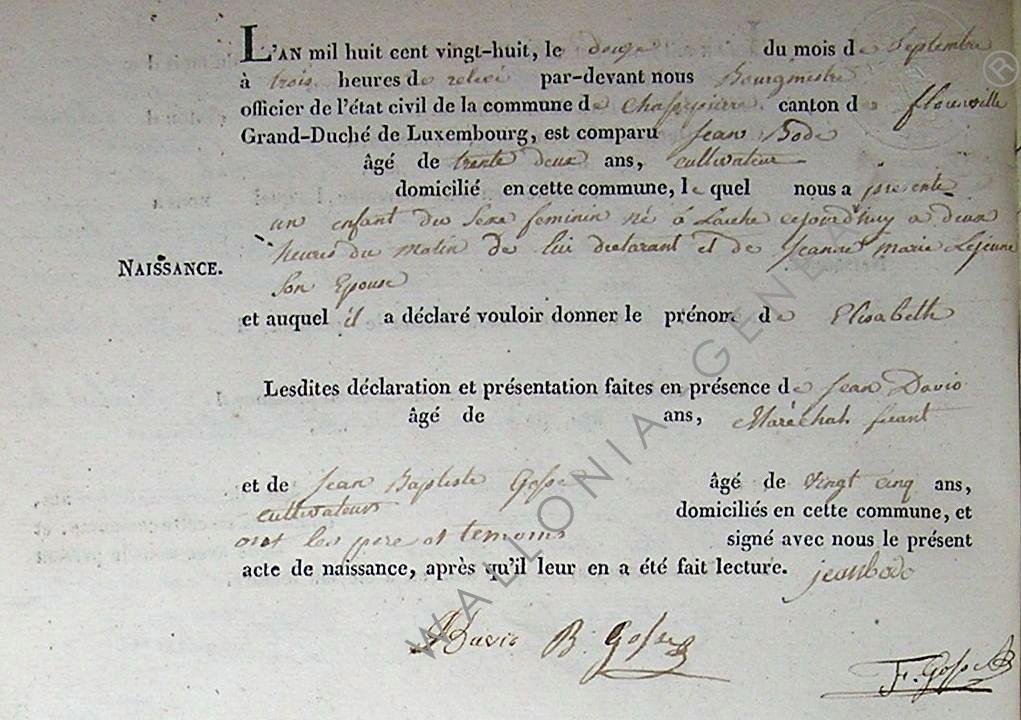 L'AN mil huit cent vingt-huit, le douze du mois de Septembre
à trois heures de relevé par-devant nous Bourgmestre
officier de l'état civil de la commune de Chassepierre canton de florenville
Grand-Duché de Luxembourg, est comparu Jean Bodo
âgé de trente deux ans, cultivateur
domicilié en cette commune, le quel nous a presente
un enfant du sexe feminin né à Laiche cejourd'huy a deux
heures du matin de lui declarant et de Jeanne marie Lejeune
NAISSANCE.
son Epouse
et auquel il a déclaré vouloir donner le prénom de Elisabeth
Lesdites déclaration et présentation faites en présence de Jean Davio
âgé de ans, Maréchal ferant
et de Jean Baptiste Gosse âgé de vingt cinq ans,
cultivateurs domiciliés en cette commune, et
ont les pere et temoins signé avec nous le présent
acte de naissance, après qu'il leur en a été fait lecture. jeanbodo
Davio B. Gosse
F. Gosse
WALLONIA GENEA
®